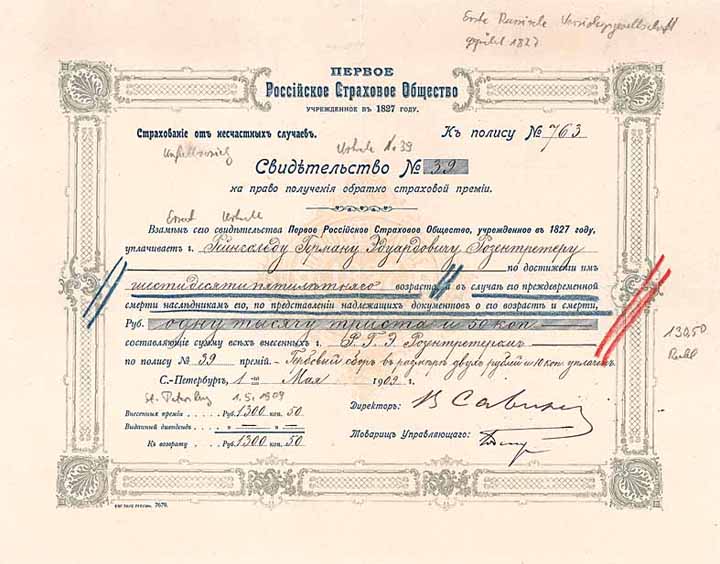 Erste Russische Versicherungsgesellschaft
gegründet 1827
ПЕРВОЕ
Россійское Страховое Общество
УЧРЕЖДЕННОЕ ВЪ 1827 ГОДУ.
Страхованіе отъ несчастныхъ случаевъ.
Къ полису № 763
Urkunde No 39
Свидѣтельство № 39
на право полученія обратно страховой преміи.
Взамѣнъ сего свидѣтельства Первое Россійское Страховое Общество, учрежденное въ 1827 году,
уплачиваетъ г. Рейнгольду Герману Эдуардовичу Розентретеру
по достиженіи имъ
шестидесятипятилѣтняго возраста, и въ случаѣ его преждевременной
смерти наслѣдникамъ его, по представленіи надлежащихъ документовъ о его возрастѣ и смерти,
Руб. одну тысячу триста и 50 коп
составляющіе сумму всѣхъ внесенныхъ г. Р. Г. Э. Розентретеромъ
по полису № 39 премій. – Гербовый сборъ въ размѣрѣ двухъ рублей и 10 коп уплаченъ.
1300.50
С.-Петербургъ, 1 Мая 1909 г.
St. Petersburg 1.5.1909
Внесенныя преміи . . . . . Руб. 1300 коп. 50.
Выданный дивидендъ . . . . „ — „ —
Къ возврату . . . . Руб. 1300 коп. 50.
Директоръ:
Товарищъ Управляющаго:
7679.